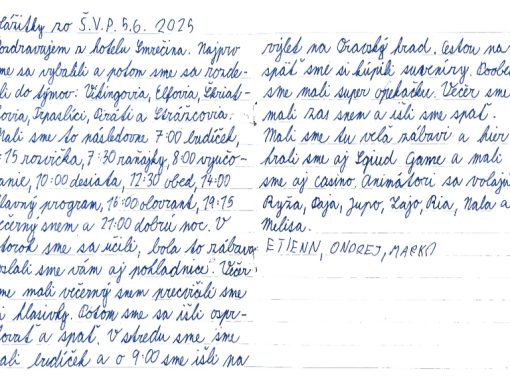 ážitky zo Š.V.P. 5.6. 2025
ozdravujem z hotelu Smrečina. Najprv
me sa vybalili a potom sme sa rozde-
li do týmov: Vikingovia, Elfovia, Škriat-
ovia, Trpaslíci, Piráti a Strážcovia.
ali sme to následovne 7:00 budíček,
:15 rozvička, 7:30 raňajky, 8:00 vyučo-
anie, 10:00 desiata, 12:30 obed, 14:00
lavný program, 16:00 olovrant, 19:15
ečerný snem a 21:00 dobrú noc. V
torok sme sa učili, bola to zábava
oslali sme vám aj pohladnice. Večer
me mali večerný snem precvičali sme
i hlasivky. Potom sme sa išli ospr-
ovať a spať. V stredu sme sme
ali budíček a o 9:00 sme išli na
výlet na Oravský hrad. Cestou na
späť sme si kúpili suveníry. Poobe
sme mali super opekačku. Večer sme
mali zas snem a išli sme spať.
Mali sme tu veľa zábavi a hier
hrali sme aj Sqiud Game a mali
sme aj casino. Animátori sa volajú
Ryža, Jupo, Zajo, Ria, Nala a
Melisa.
ETIENN, ONDREJ, MARKO